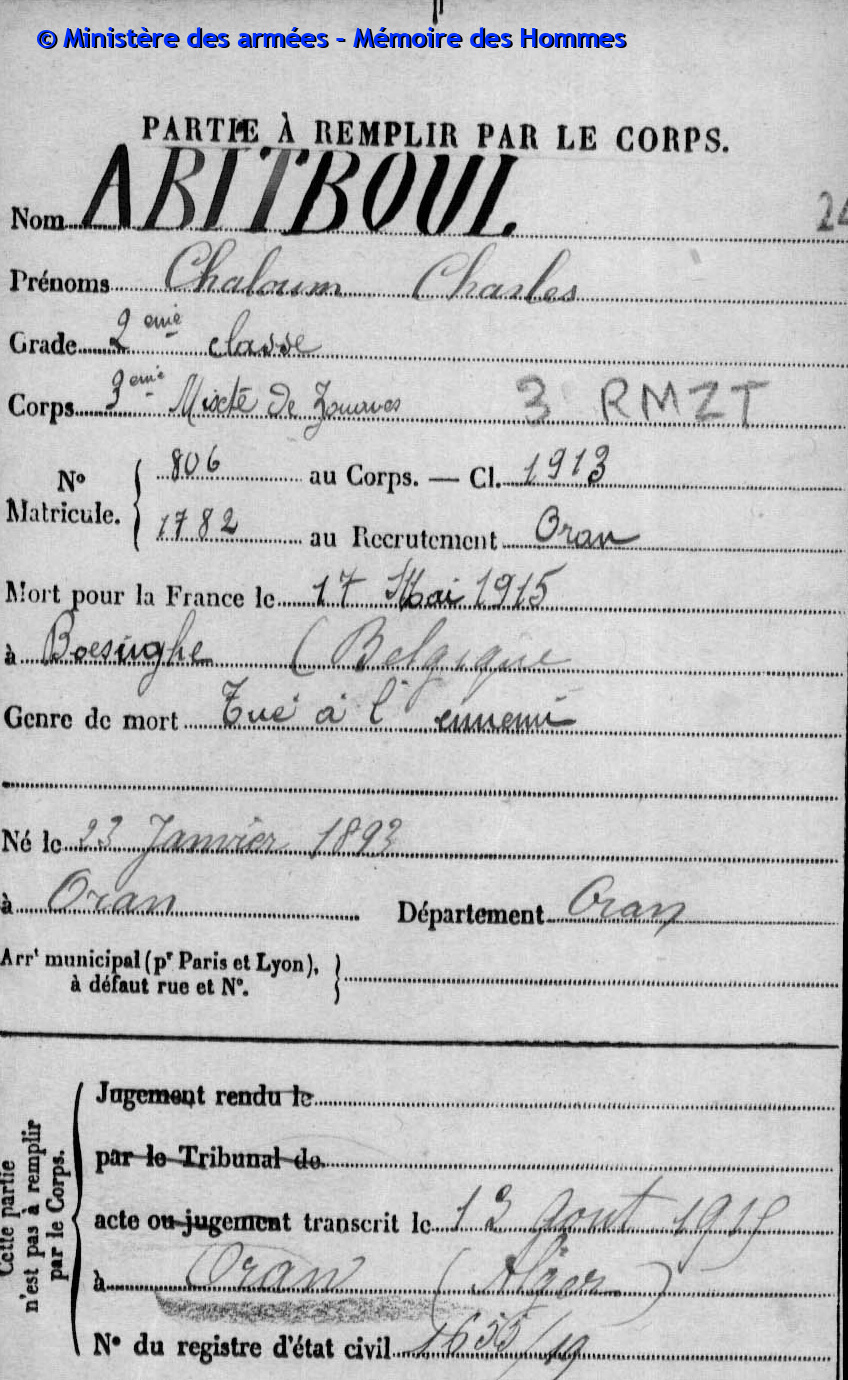 © Ministère des armées - Mémoire des Hommes
PARTIE À REMPLIR PAR LE CORPS.
Nom ABITBOUL
24
Prénoms Chaloum Charles
Grade 2eme classe
Corps 3eme Mixte de Zouaves 3 RMZT
No Matricule. { 806 au Corps. — Cl. 1913
1782 au Recrutement Oran
Mort pour la France le 17 Mai 1915
à Boesinghe (Belgique
Genre de mort Tué à l'ennemi
Né le 23 Janvier 1893
à Oran Département Oran
Arrt municipal (pr Paris et Lyon),
à défaut rue et No. }
Cette partie
n'est pas à remplir
par le Corps.
Jugement rendu le
par le Tribunal de
acte ou jugement transcrit le 13 Aout 1915
à Oran (Alger)
No du registre d'état civil 1655/19